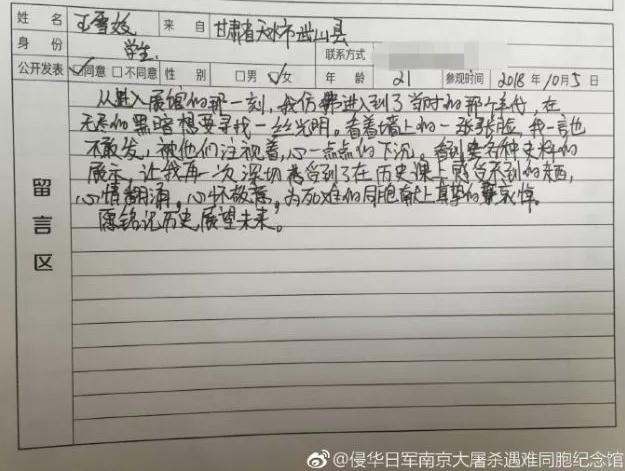 姓名 王雪姣 来自 甘肃省天水市武山县
身份 学生 联系方式
公开发表 ☑同意 □不同意 性别 □男 ☑女 年龄 21 参观时间 2018年10月5日
留言区
从踏入展馆的那一刻，我仿佛进入到了当时的那个年代，在
无尽的黑暗想要寻找一丝光明。看着墙上的一张张脸，我一言也
不敢发，被他们注视着，心一点点的下沉。看到各种史料的
展示，让我再一次深切感受到了在历史课上感受不到的东西，
心情翻涌，心怀敬意，为死难的同胞献上真挚的哀悼。
愿铭记历史，展望未来。
@侵华日军南京大屠杀遇难同胞纪念馆